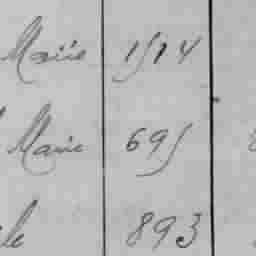 Marie 1514
Marie 695
le 893